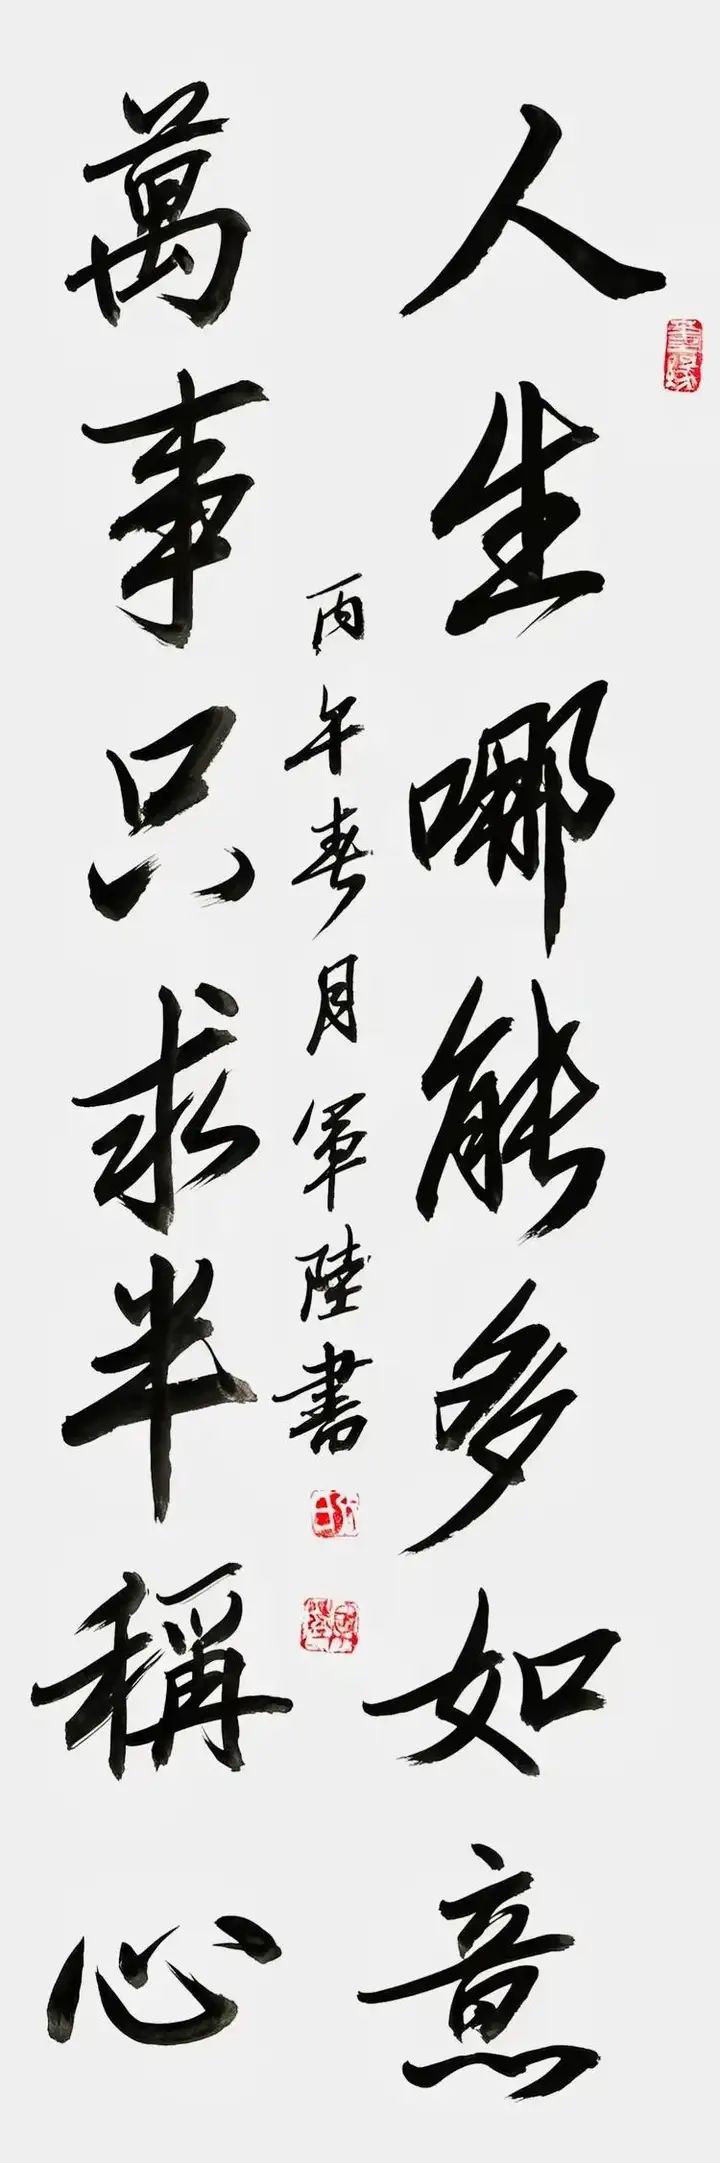 人生哪能多如意
萬事只求半稱心
丙午春月軍陸書